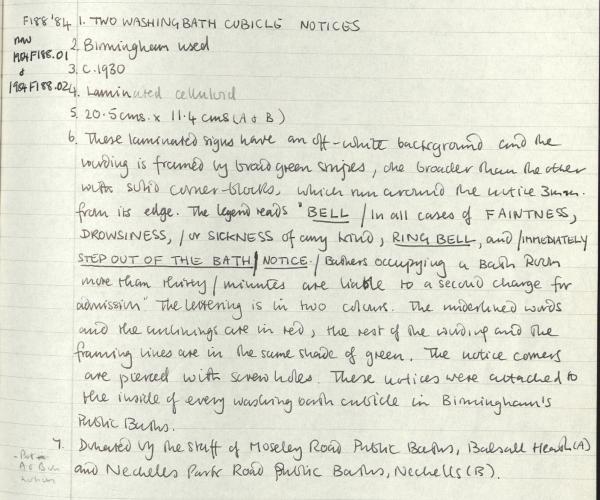 F188 '84 1. TWO WASHING BATH CUBICLE NOTICES
now 2. Birmingham used
1984F188.01 3. C.1930
&
1984F188.02 4. Laminated celluloid
5. 20.5cms. x 11.4 cms (A & B)
6. These laminated signs have an off-white background and the
wording is framed by broad green stripes, one broader than the other
with solid corner-blocks, which run around the notice 3mm.
from its edge. The legend reads "BELL / In all cases of FAINTNESS,
DROWSINESS, / or SICKNESS of any kind, RING BELL, and / IMMEDIATELY
STEP OUT OF THE BATH / NOTICE. / Bathers occupying a Bath Room
more than thirty / minutes are liable to a second charge for
admission" The lettering is in two colours. The underlined words
and the are in red, the rest of the wording and the
framing lines are in the same shade of green. The notice corners
are pierced with screw holes. These notices were attached to
the inside of every washing bath cubicle in Birmingham's
Public Baths.
7. Donated by the staff of Moseley Road Public Baths, Balsall Heath (A)
and Nechells Park Road Public Baths, Nechells (B).
A & B